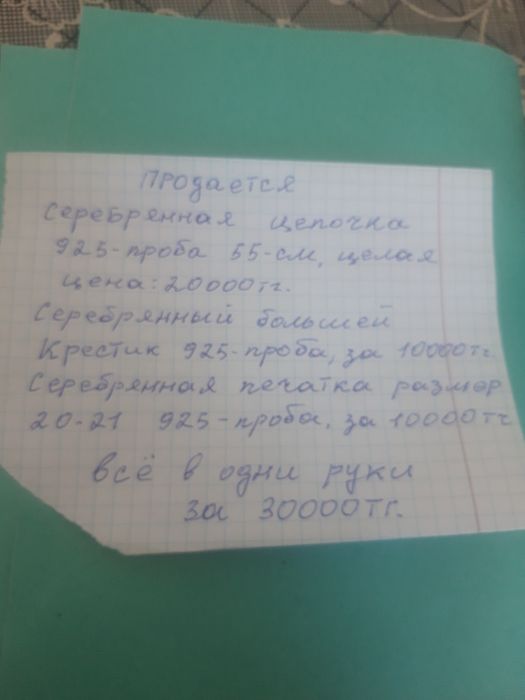 Продается
Серебрянная цепочка
925-проба 55-см, целая
цена: 20000тг.
Серебрянный большей
Крестик 925-проба, за 10000тг.
Серебрянная печатка размер
20-21 925-проба, за 10000тг
всё в одни руки
за 30000тг.